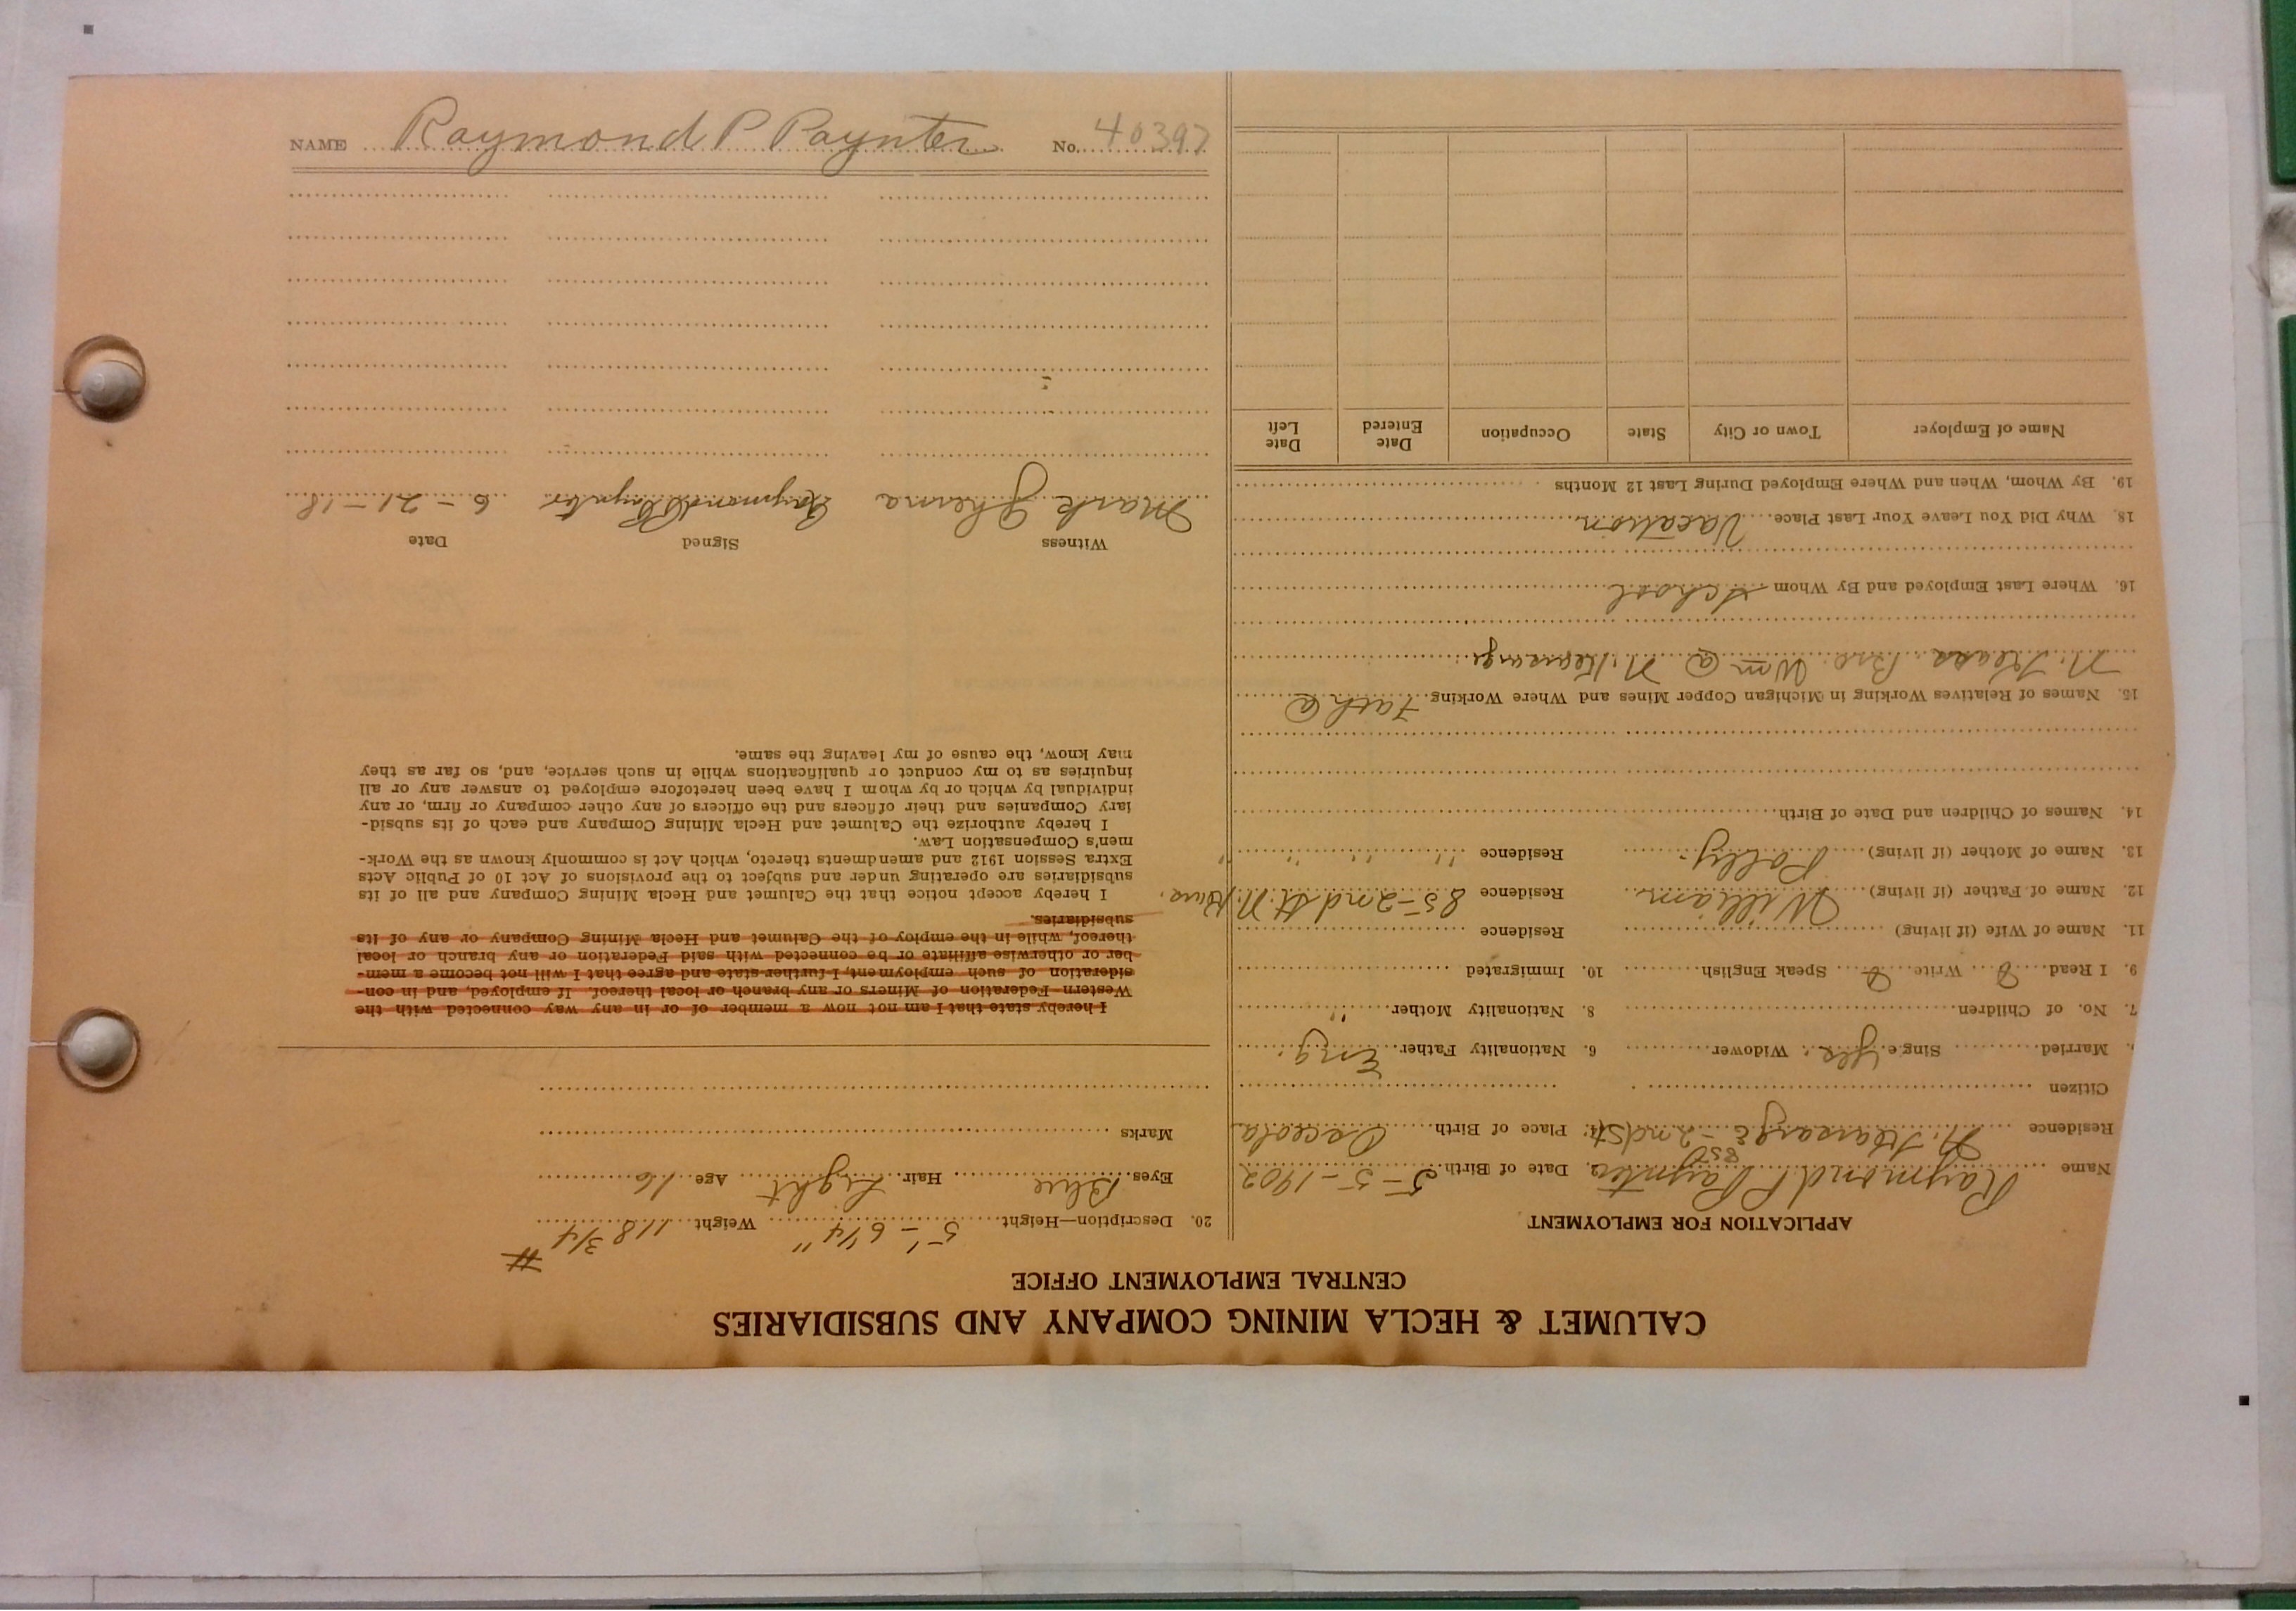 NAME Raymond P Paynter No. 40397
CALUMET & HECLA MINING COMPANY AND SUBSIDIARIES
CENTRAL EMPLOYMENT OFFICE
APPLICATION FOR EMPLOYMENT
Name Raymond P Paynter 2. Date of Birth 5-5-1902
Residence N. Kearsarge 85-2nd St. 4. Place of Birth Osceola
Citizen
Married Single Yes. Widower 6. Nationality Father Eng.
7. No. of Children 8. Nationality Mother "
9. I Read Write Speak English 10. Immigrated
11. Name of Wife (if living) Residence
12. Name of Father (if living) William Residence 85-2nd St. N.
13. Name of Mother (if living) Polly Residence " " " "
14. Names of Children and Date of Birth
15. Names of Relatives Working in Michigan Copper Mines and Where Working Fath @
N. Kears. Bro. Wm @ N. Kearsarge
16. Where Last Employed and By Whom School
18. Why Did You Leave Your Last Place Vacation
19. By Whom, When and Where Employed During Last 12 Months
Name of Employer Town or City State Occupation Date Entered Date Left
20. Description—Height 5'-6 1/4" Weight 118 3/4 #
Eyes Blue Hair Light Age 16
Marks
I hereby state that I am not now a member of or in any way connected with the
Western Federation of Miners or any branch or local thereof. If employed, and in con-
sideration of such employment, I further state and agree that I will not become a mem-
ber or otherwise affiliate or be connected with said Federation or any branch or local
thereof, while in the employ of the Calumet and Hecla Mining Company or any of its
subsidiaries.
I hereby accept notice that the Calumet and Hecla Mining Company and all of its
subsidiaries are operating under and subject to the provisions of Act 10 of Public Acts
Extra Session 1912 and amendments thereto, which Act is commonly known as the Work-
men's Compensation Law.
I hereby authorize the Calumet and Hecla Mining Company and each of its subsid-
iary Companies and their officers and the officers of any other company or firm, or any
individual by which or by whom I have been heretofore employed to answer any or all
inquiries as to my conduct or qualifications while in such service, and, so far as they
may know, the cause of my leaving the same.
Witness Signed Date
Mark Raymond P Paynter 6-21-18